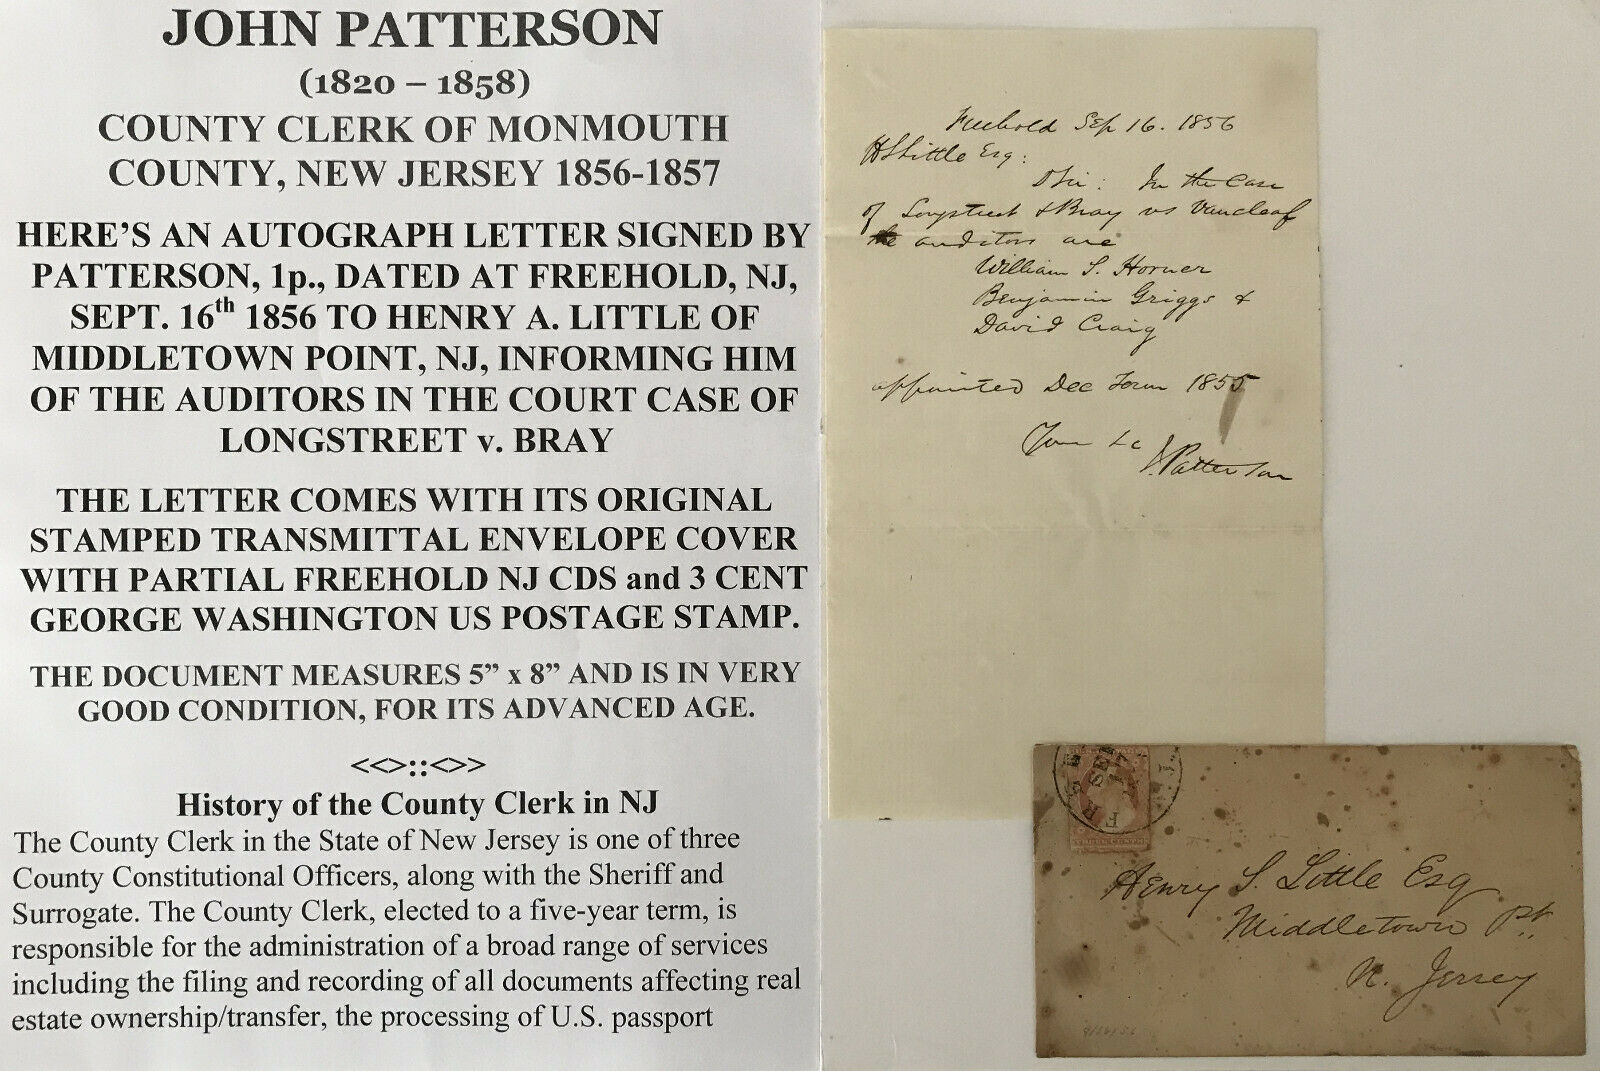 JOHN PATTERSON
(1820 – 1858)
COUNTY CLERK OF MONMOUTH
COUNTY, NEW JERSEY 1856-1857
HERE'S AN AUTOGRAPH LETTER SIGNED BY
PATTERSON, 1p., DATED AT FREEHOLD, NJ,
SEPT. 16th 1856 TO HENRY A. LITTLE OF
MIDDLETOWN POINT, NJ, INFORMING HIM
OF THE AUDITORS IN THE COURT CASE OF
LONGSTREET v. BRAY
THE LETTER COMES WITH ITS ORIGINAL
STAMPED TRANSMITTAL ENVELOPE COVER
WITH PARTIAL FREEHOLD NJ CDS and 3 CENT
GEORGE WASHINGTON US POSTAGE STAMP.
THE DOCUMENT MEASURES 5” x 8” AND IS IN VERY
GOOD CONDITION, FOR ITS ADVANCED AGE.
<<>::<>>
History of the County Clerk in NJ
The County Clerk in the State of New Jersey is one of three
County Constitutional Officers, along with the Sheriff and
Surrogate. The County Clerk, elected to a five-year term, is
responsible for the administration of a broad range of services
including the filing and recording of all documents affecting real
estate ownership/transfer, the processing of U.S. passport
Freehold Sep 16. 1856
H S Little Esq:
D Sir: In the Case
of Longstreet & Bray vs Vancleaf
the auditors are
William S. Horner
Benjamin Griggs &
David Craig
appointed Dec Term 1855
Yours &c
J. Patterson
SEP
17
Henry S. Little Esq
Middletown Pt.
N. Jersey